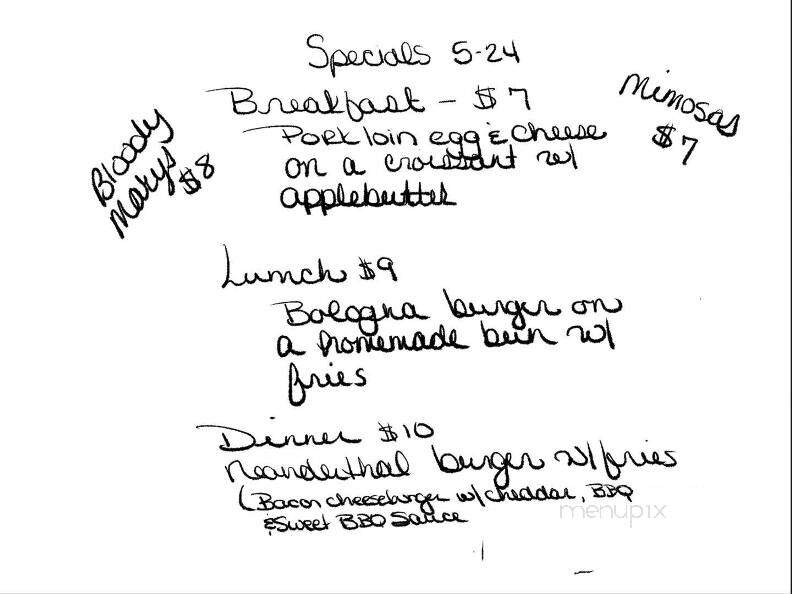 Specials 5-24
Breakfast - $7
Mimosas
$7
Bloody
Marys
$8
Pork loin egg & cheese
on a croissant w/
applebutter
Lunch $9
Bologna burger on
a homemade bun w/
fries
Dinner $10
Neanderthal burger w/fries
(Bacon cheeseburger w/cheddar, BBQ
& Sweet BBQ Sauce
menupix